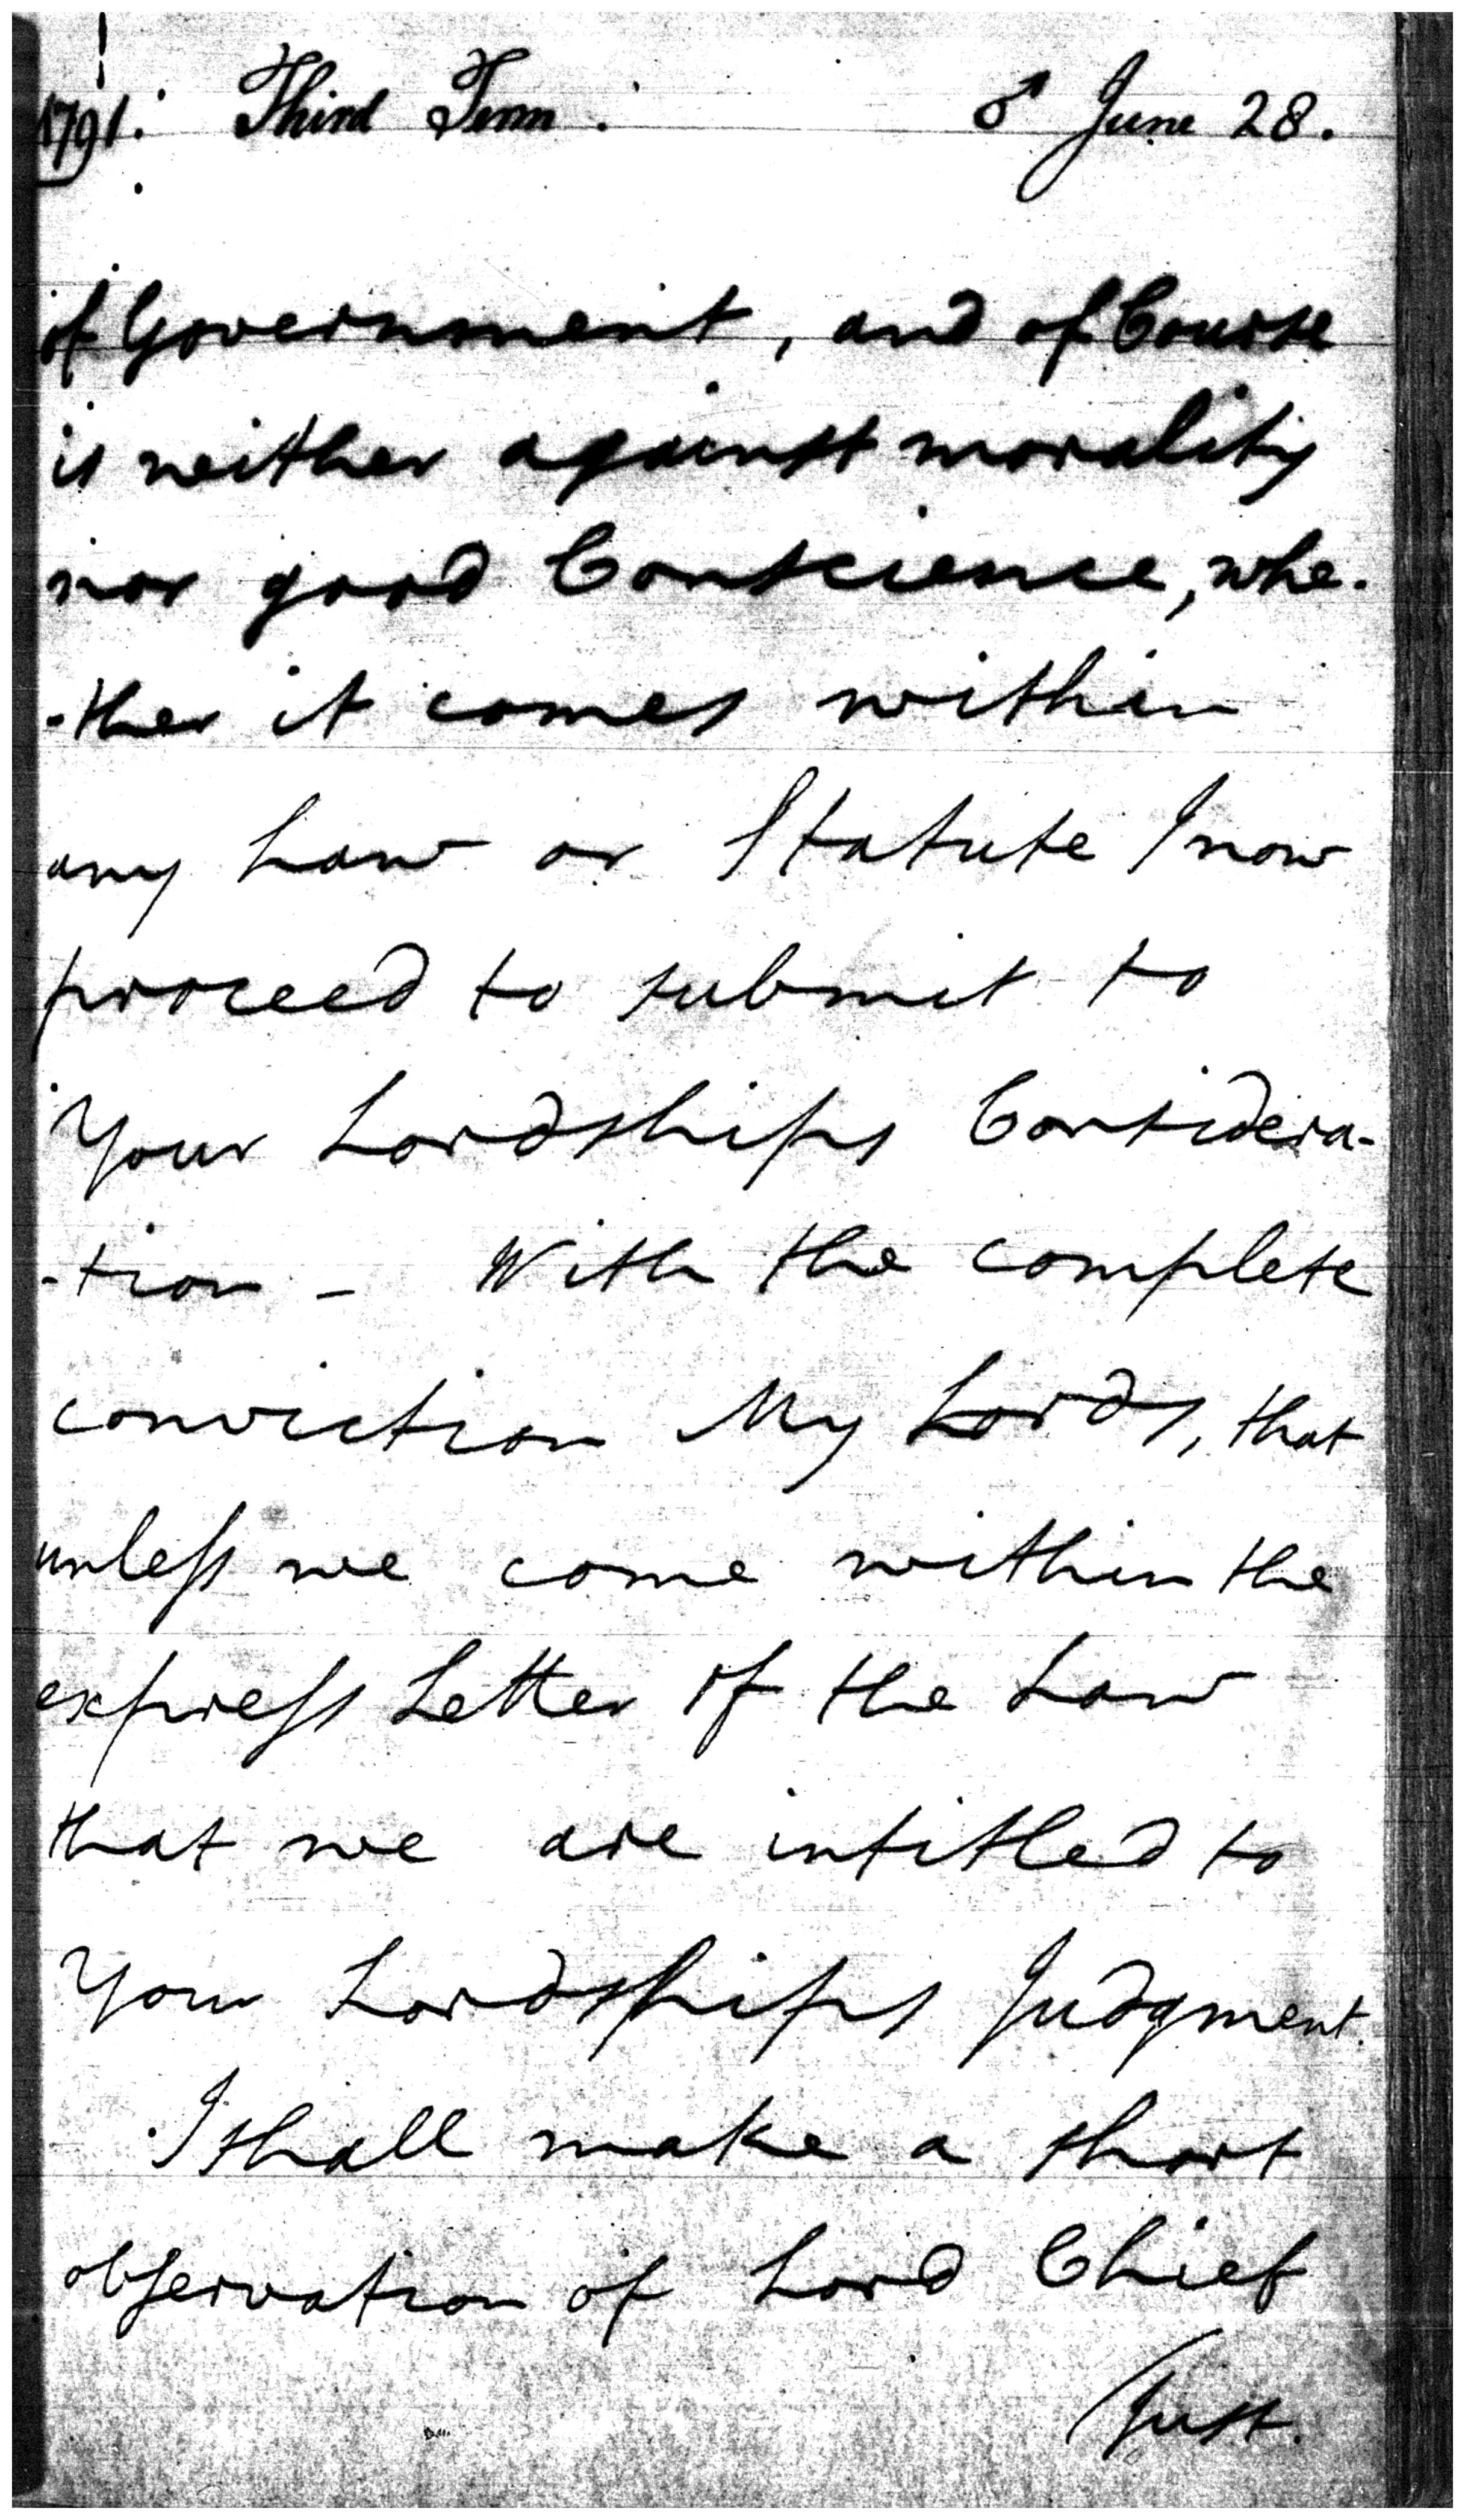 1791. Third Term. ♂ June 28.
of Government, and of Course
is neither against morality
nor good Conscience, whe-
-ther it comes within
any Law or Statute I now
proceed to submit to
Your Lordships Considera-
-tion - With the complete
conviction My Lords, that
unless we come within the
express Letter of the Law
that we are intitled to
Your Lordships Judgment.
I shall make a short
observation of Lord Chief
Just.